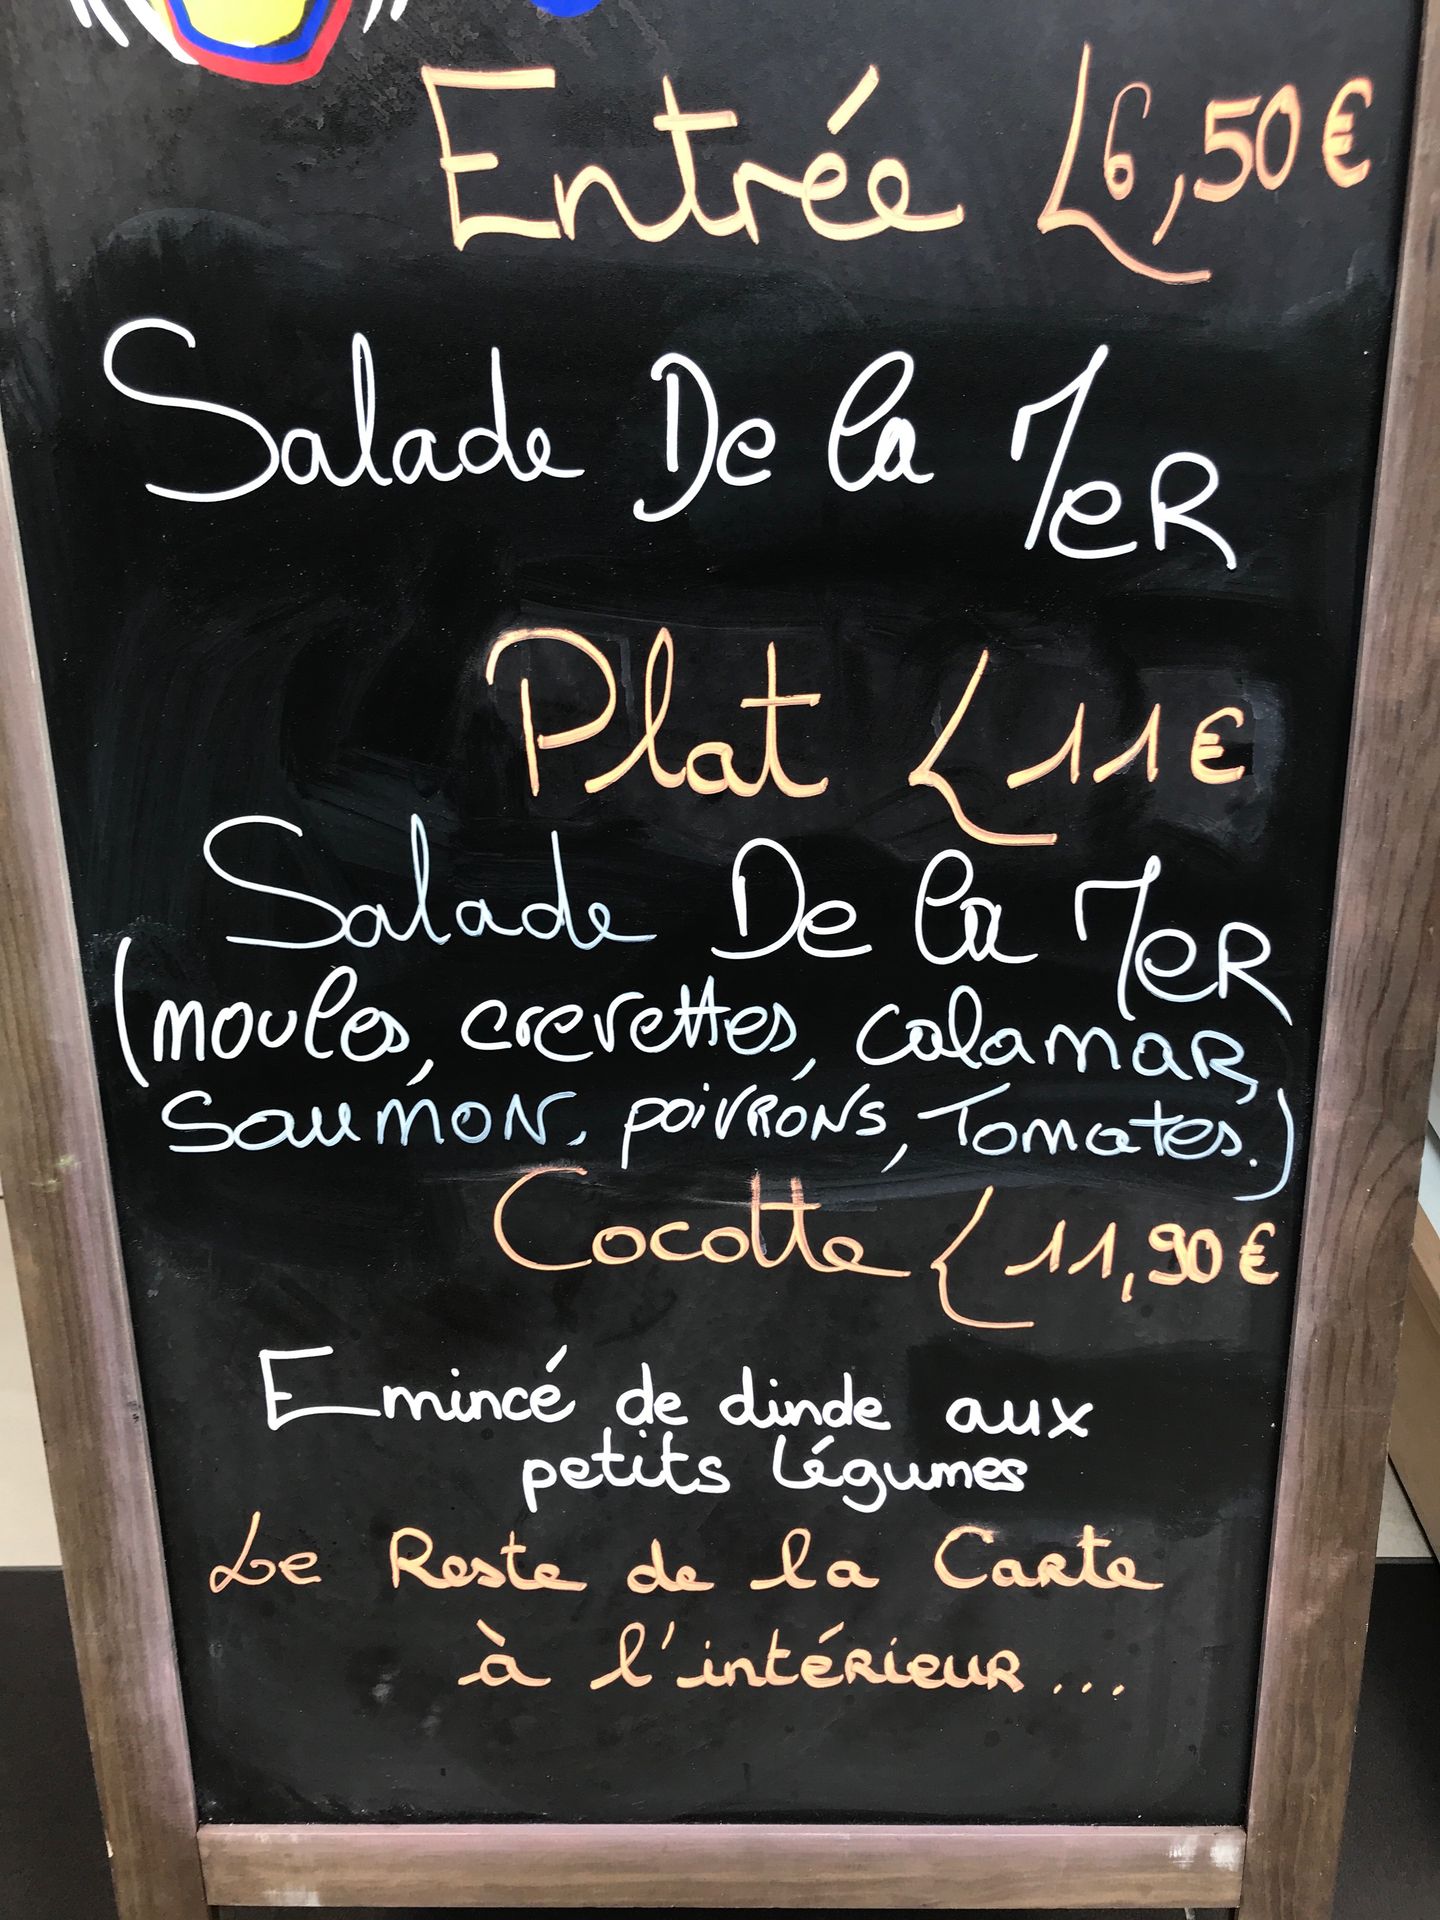 Entrée 6,50€
Salade De la Mer
Plat 11€
Salade De la Mer
(moules, crevettes, calamar,
saumon, poivrons, Tomates.)
Cocotte 11,90€
Emincé de dinde aux
petits légumes
Le Reste de la Carte
à l'intérieur...